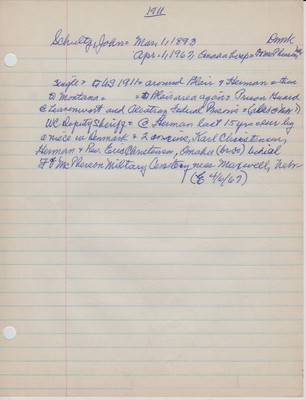 1911
Schultz, John = Mar, 1, 1893 Dnmk
Apr, 1, 1967,
single = US 1911 = around Blair & Herman = then
to Montana = = to Blair area again = Prison Guard
@ Leavenworth and Federal Prisons =
WC Deputy Sheriff = @ Herman last 15 yrs = surv by
a niece in Denmark = 2 cousins, Karl Christensen,
Herman & Rev. Eric Christensen, Omaha (bros) burial
Ft McPherson Military Cemetery near Maxwell, Nebr
(E 4/6/67)